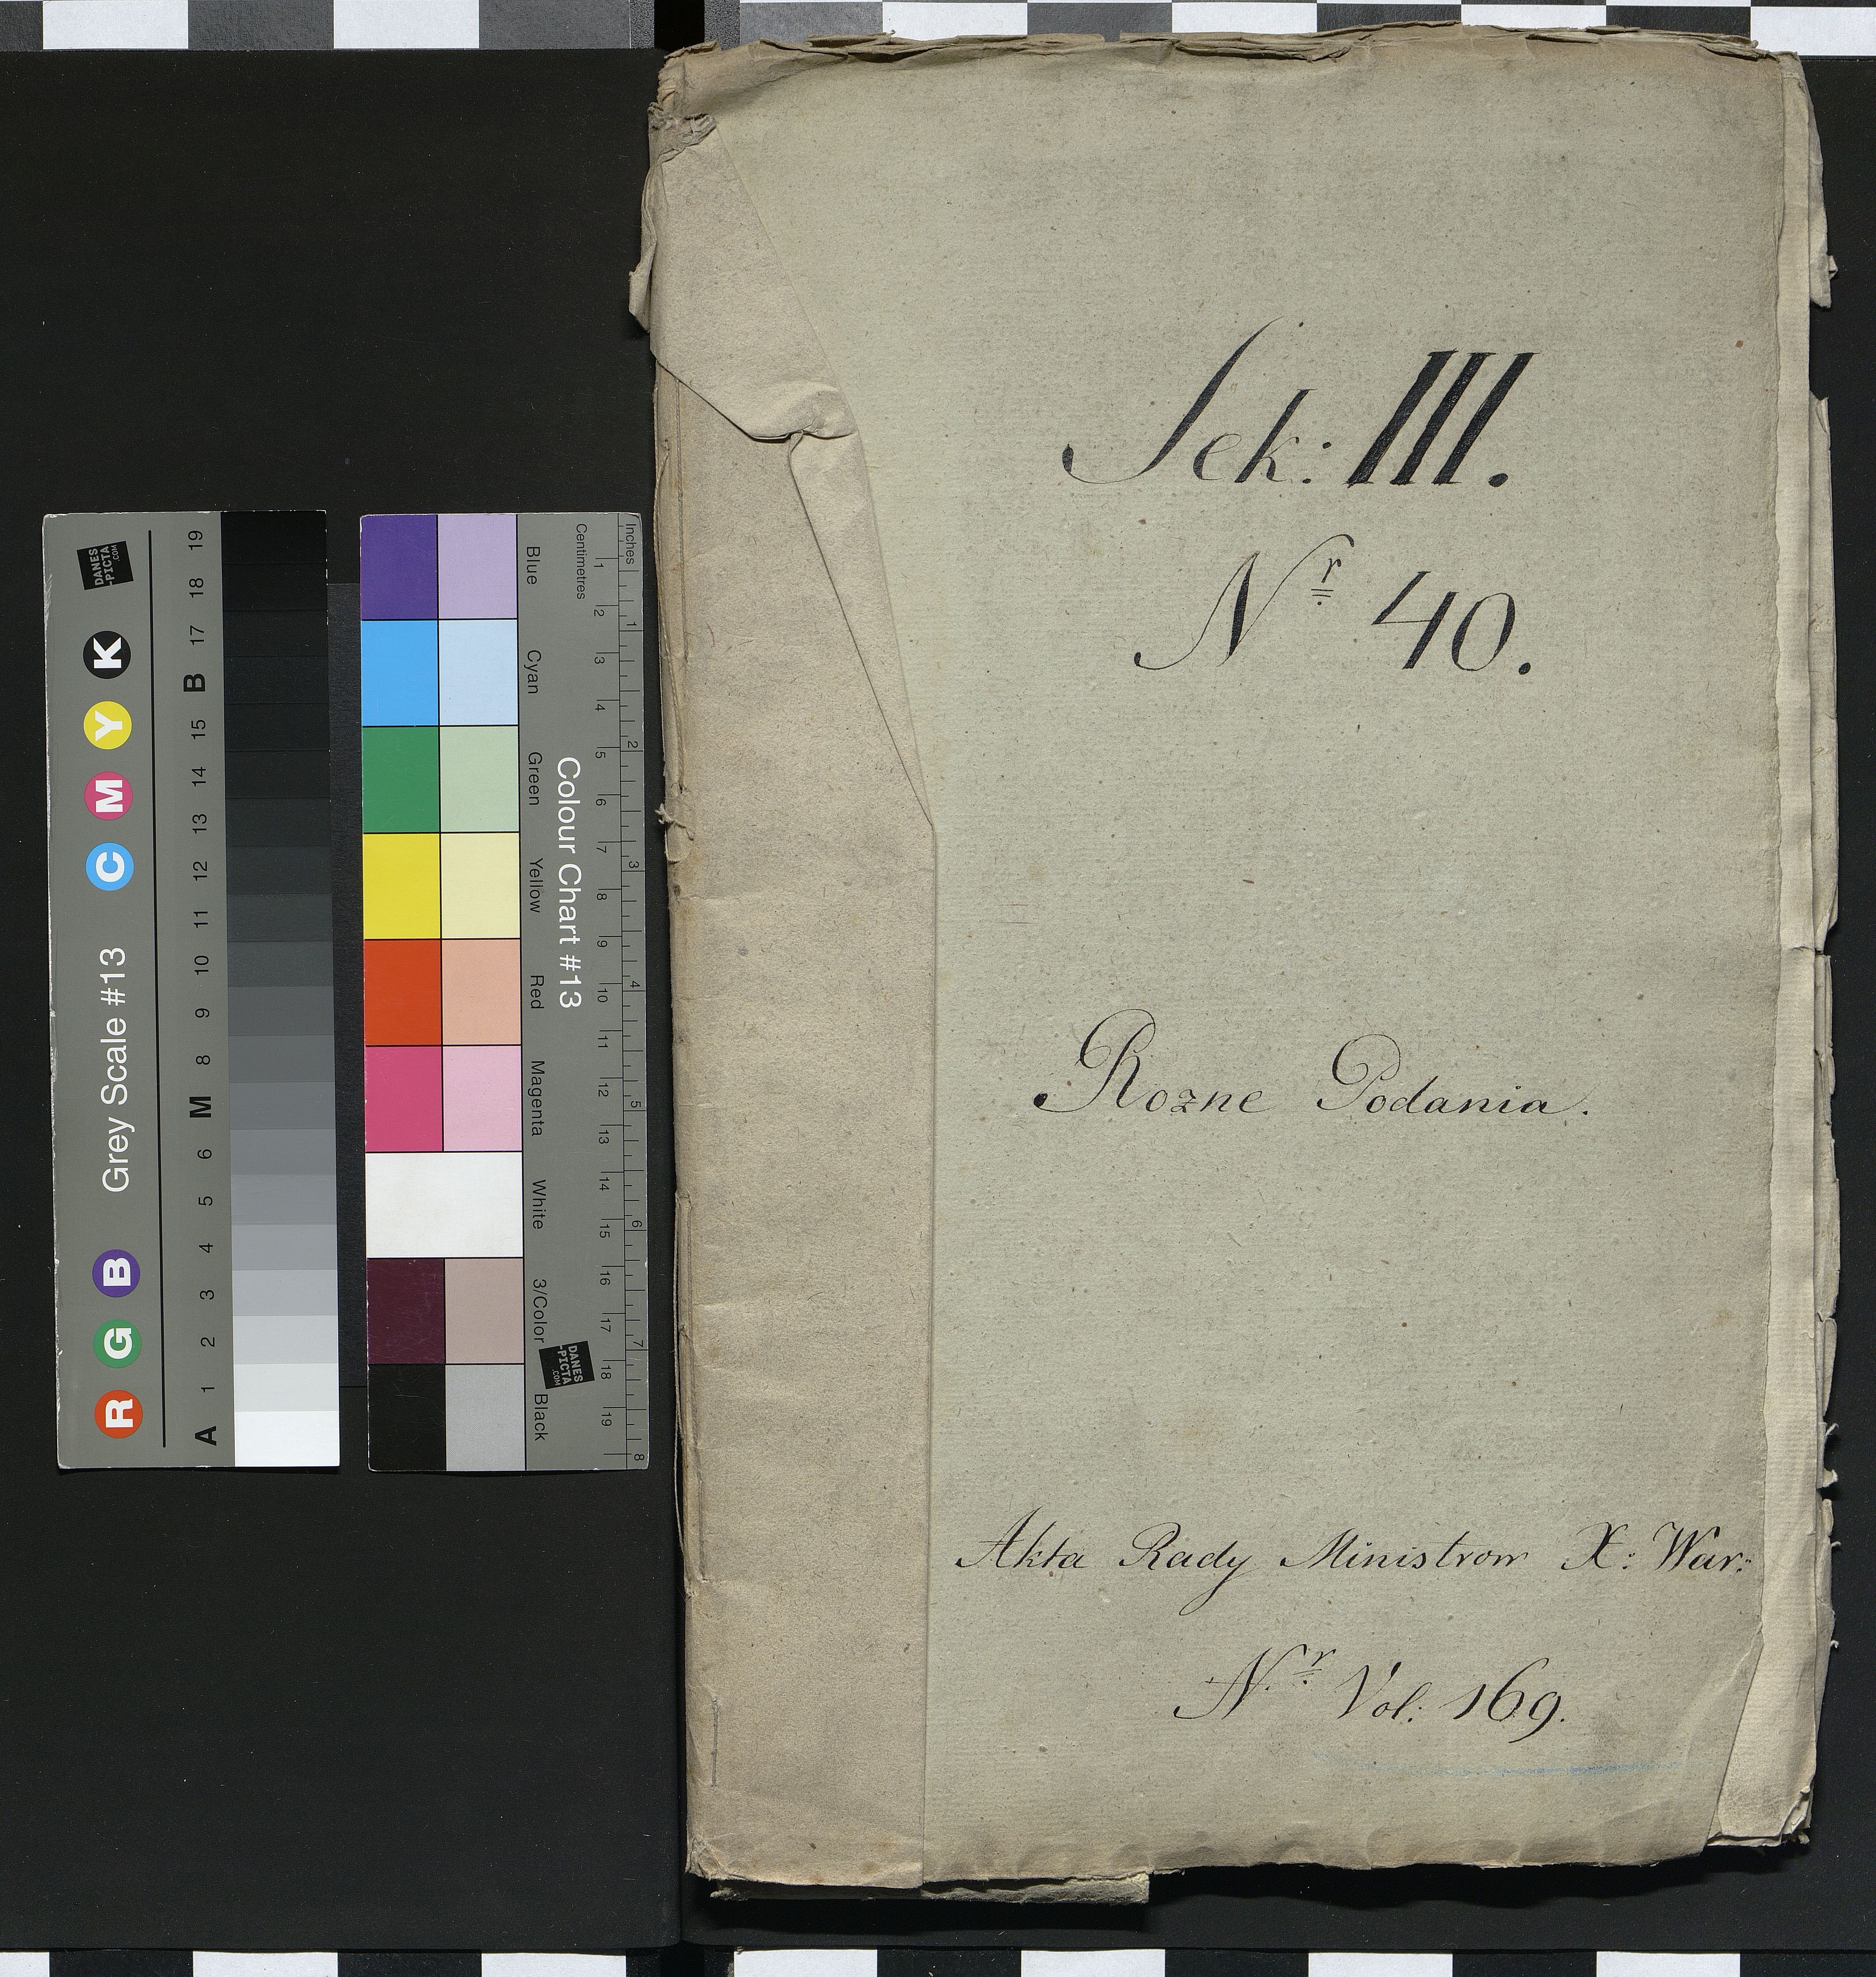 Sek: III.
Nr 40.
Rozne Podania.
Akta Rady Ministrow X: War:
Nr Vol: 169.
Grey Scale #13
R G B C M Y K
A 1 2 3 4 5 6 M 8 9 10 11 12 13 14 15 B 17 18 19
DANES
-PICTA
.COM
Colour Chart #13
Blue Cyan Green Yellow Red Magenta White 3/Color Black
Centimetres 1 2 3 4 5 6 7 8 9 10 11 12 13 14 15 16 17 18 19
Inches 1 2 3 4 5 6 7 8
DANES
-PICTA
.COM